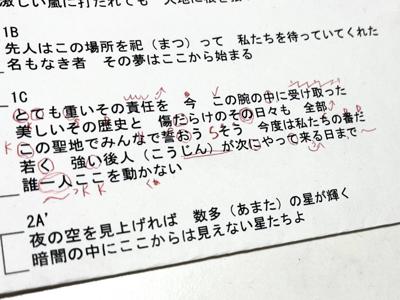 激しい嵐に打たれても 大地に根を
1B
先人はこの場所を祀（まつ）って 私たちを待っていてくれた
名もなき者 その夢はここから始まる
1C
とても重いその責任を 今 この腕の中に受け取った
美しいその歴史と 傷だらけのその日々も 全部
この聖地でみんなで誓おう そう 今度は私たちの番だ
若く 強い後人（こうじん）が次にやって来る日まで
誰一人ここを動かない
2A'
夜の空を見上げれば 数多（あまた）の星が輝く
暗闇の中にここからは見えない星たちよ